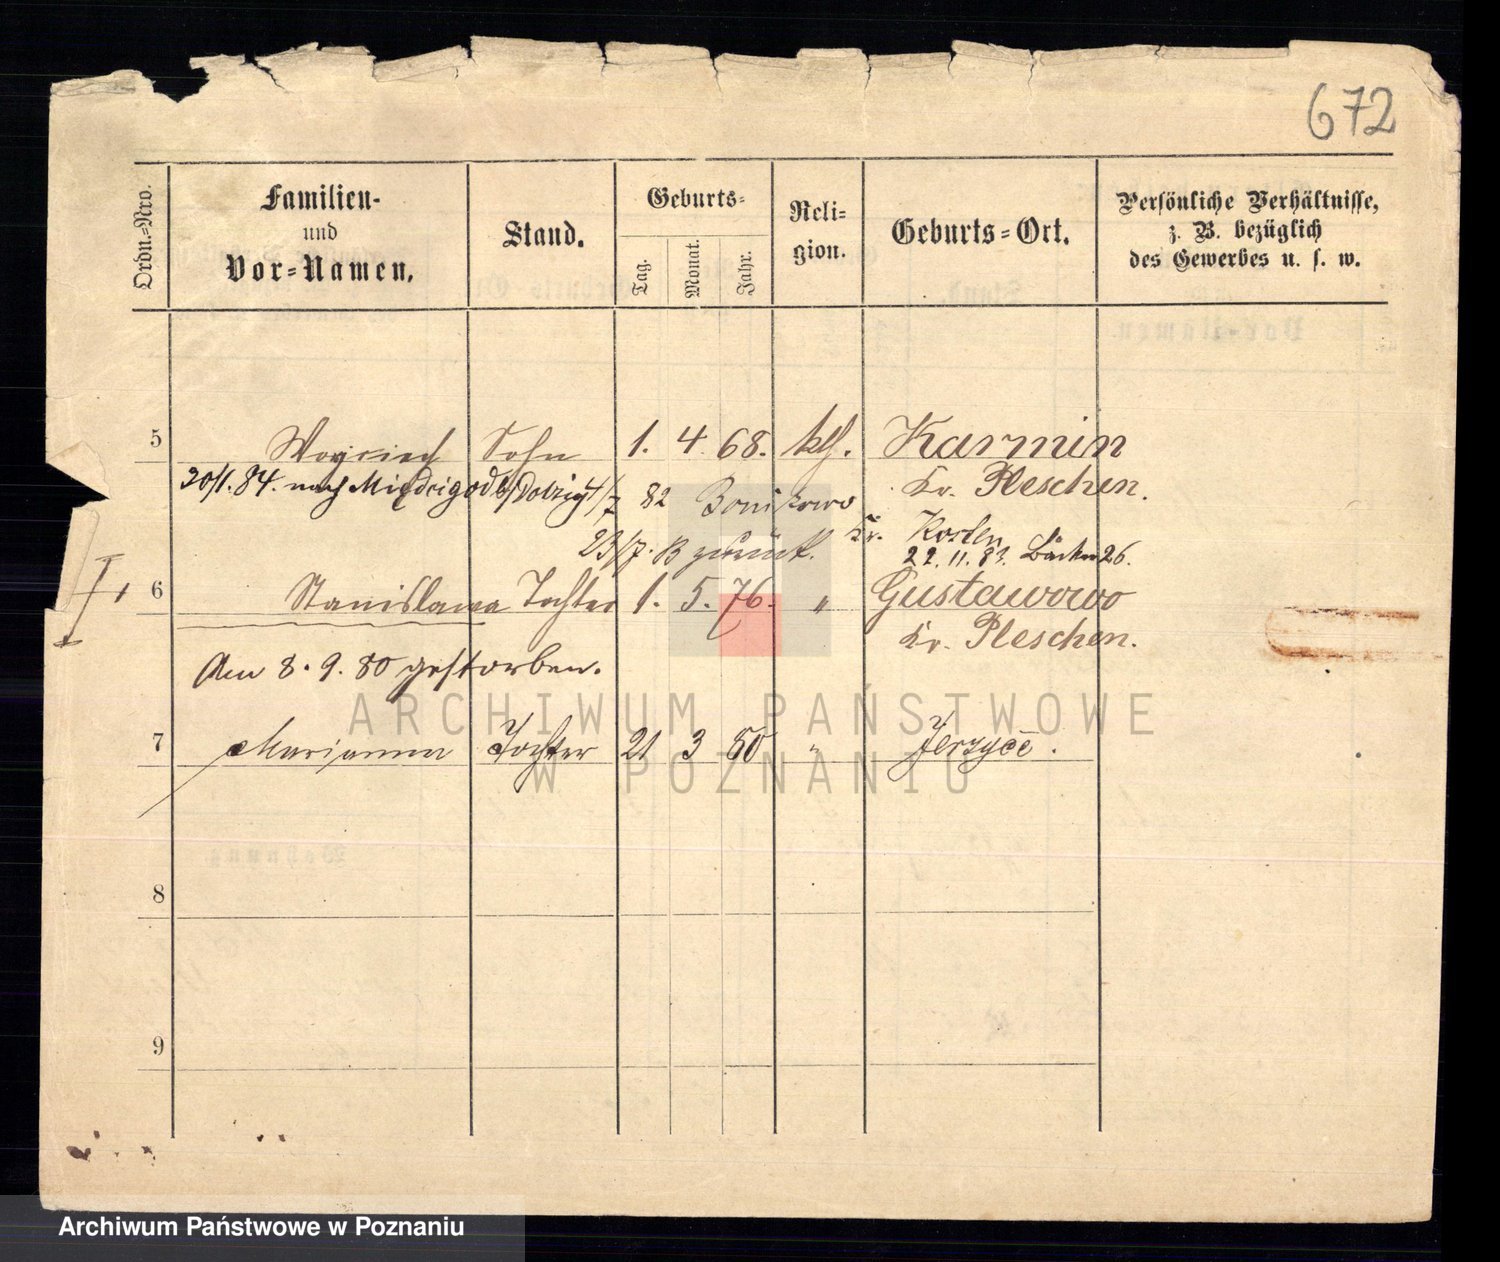 672
Ordn.-Nro.
Familien-
und
Vor-Namen.
Stand.
Geburts-
Tag.
Monat.
Jahr.
Reli-
gion.
Geburts-Ort.
Persönliche Verhältnisse,
z. B. bezüglich
des Gewerbes u. s. w.
5 Woyciech Sohn 1. 4. 68. kth. Karmin
Kr. Pleschen.
20/1. 84. nach
82 Bonikowo
Kr. Kosten
23/7. zurück.
22. 11. 83. Bäcker 26.
6 Stanislawa Tochter 1. 5. 76. " Gustawowo
Kr. Pleschen.
Am 8. 9. 80 gestorben.
7 Marianna Tochter 21 3 80 " Jerzyce.
8
9
ARCHIWUM PAŃSTWOWE
W POZNANIU
Archiwum Państwowe w Poznaniu